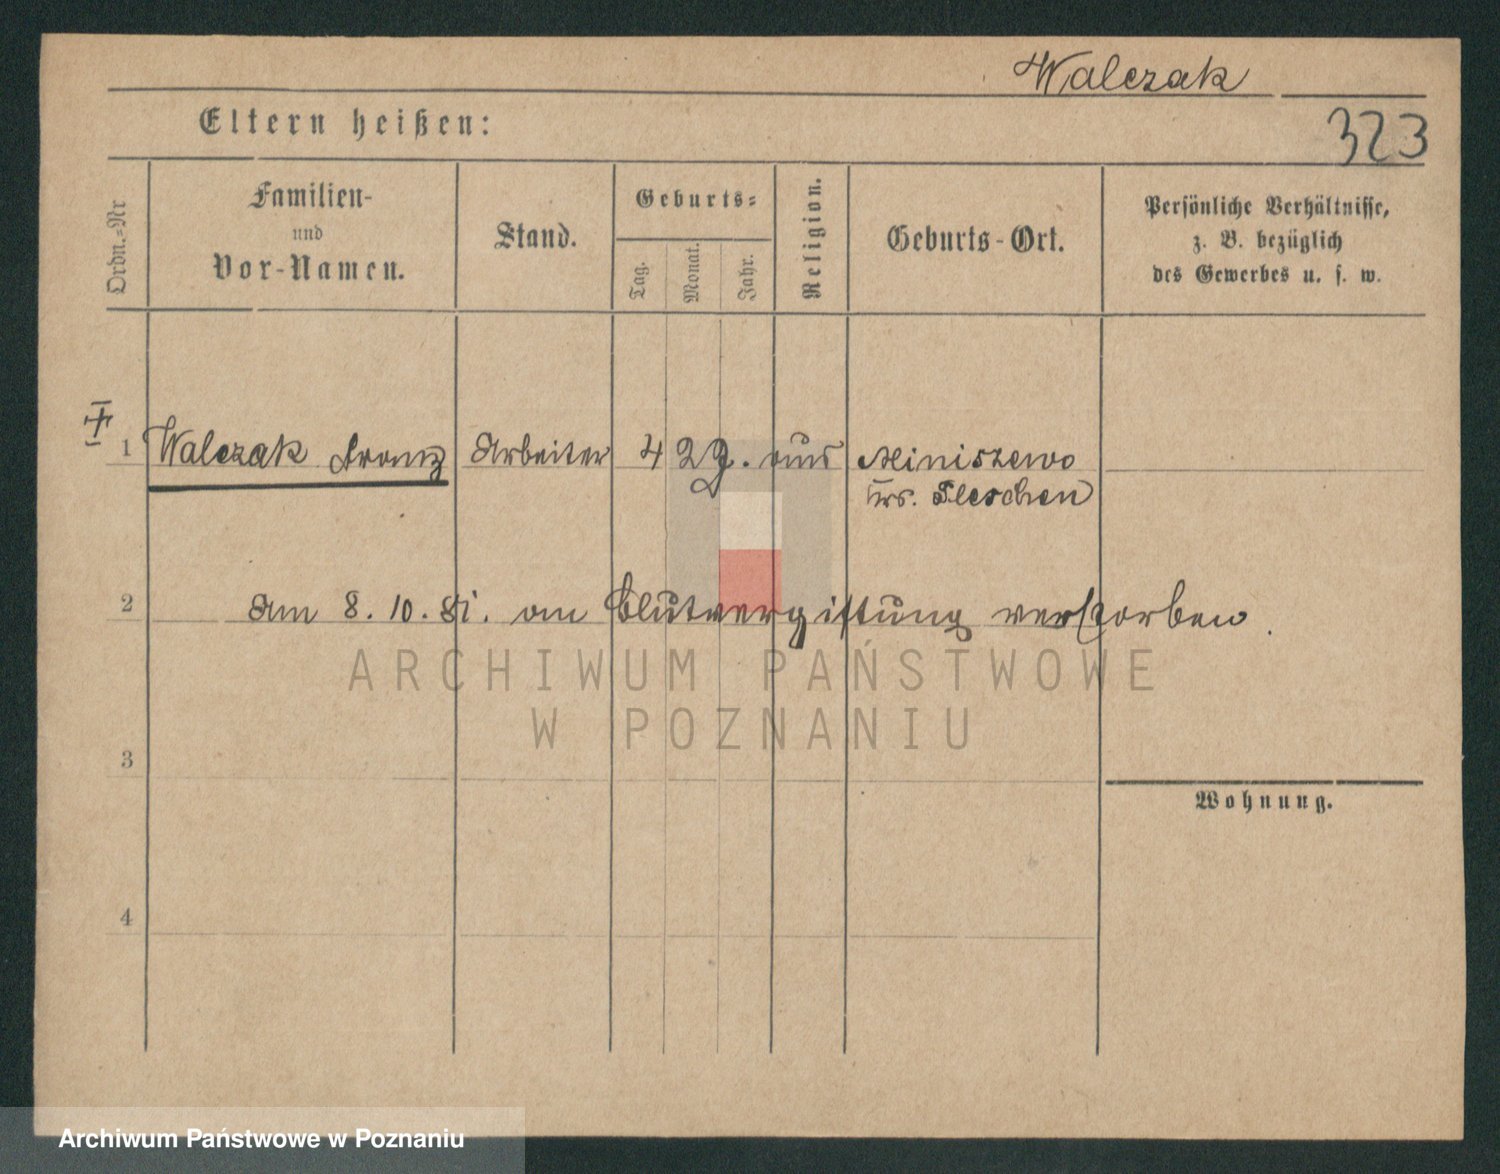 Walczak
Eltern heißen:
323
Ordn.=Nr
Familien-
und
Vor-Namen.
Stand.
Geburts=
Tag.
Monat.
Jahr.
Religion.
Geburts-Ort.
Persönliche Verhältnisse,
z. B. bezüglich
des Gewerbes u. s. w.
1 Walczak Franz Arbeiter 42 J. aus Miniszewo
Krs. Pleschen
2 Am 8. 10. 81. an Blutvergiftung verstorben.
ARCHIWUM PAŃSTWOWE
W POZNANIU
3
Wohnung.
4
Archiwum Państwowe w Poznaniu